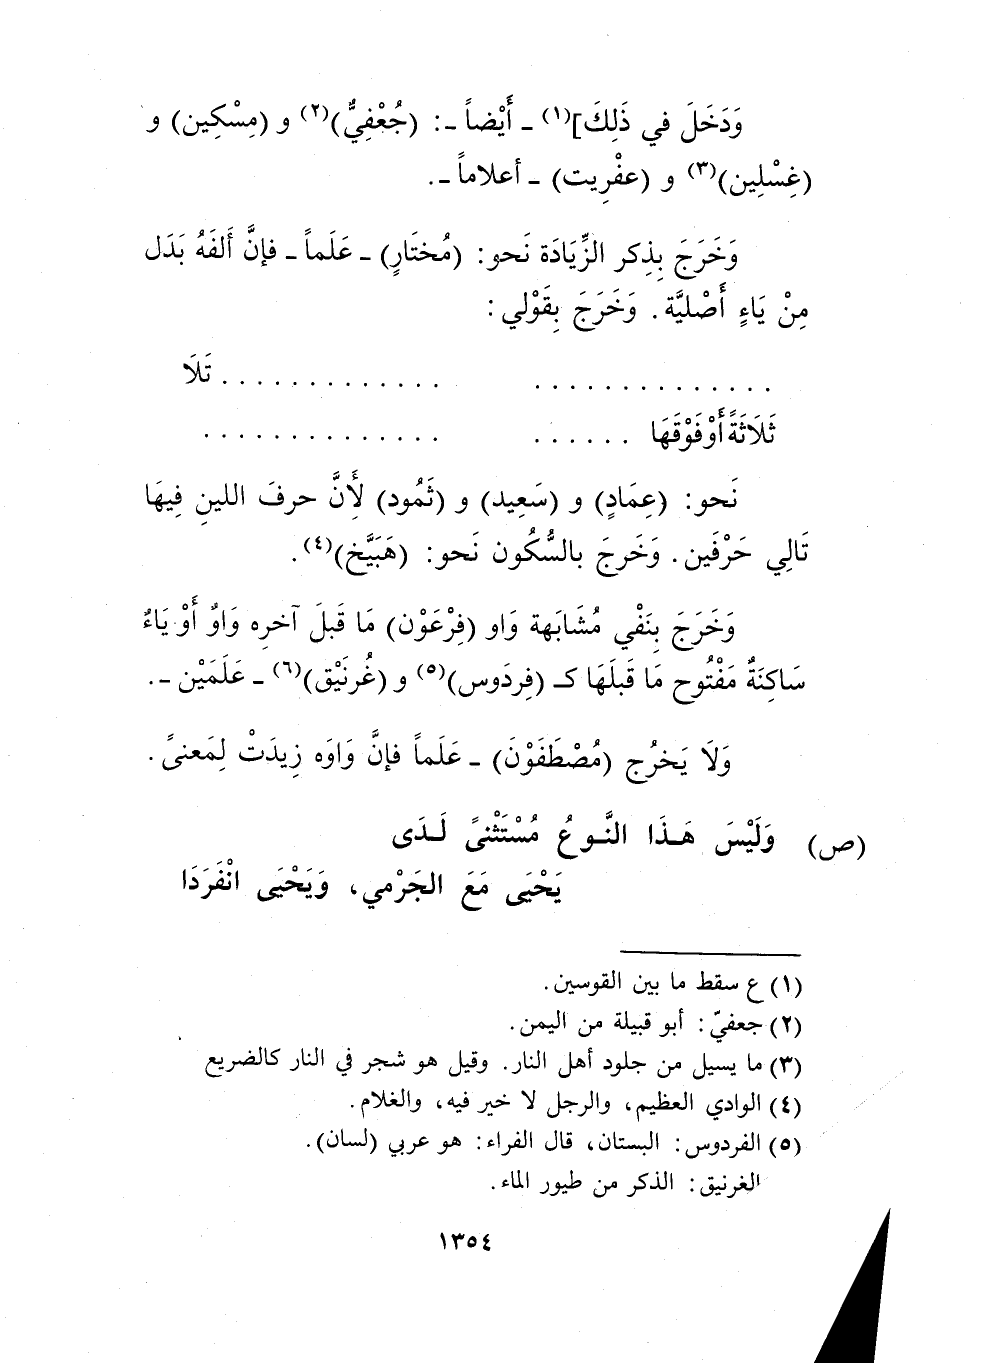 وَدَخَلَ في ذَلِكَ](١) - أَيْضاً -: (جُعْفِيٌّ)(٢) و (مِسْكِين) و
(غِسْلِين)(٣) و (عفْرِيت) - أعلاماً -.
وَخَرَجَ بِذِكر الزِّيَادَة نَحو: (مُختَارٍ) - عَلَماً - فإنَّ أَلفَهُ بَدَل
مِنْ يَاءٍ أَصْليَّة. وَخَرَجَ بِقَوْلي:
. . . . . . . . . . . . . . . . . . . . . . . . . . . تَلَا
ثَلَاثَةً أَوْ فَوْقَهَا . . . . . . . . . . . . . . . . . . . .
نَحو: (عِمَادٍ) و (سَعِيد) و (ثَمُود) لأَنَّ حرفَ اللينِ فِيهَا
تَالِي حَرْفَين. وَخَرجَ بالسُّكُون نَحو: (هَبَيَّخ)(٤).
وَخَرجَ بِنَفْي مُشَابَهة وَاو (فِرْعَوْن) مَا قَبلَ آخرِه وَاوٌ أَوْ يَاءٌ
سَاكِنَةٌ مَفْتُوح مَا قَبلَهَا كـ (فِردَوس)(٥) و (غُرنَيْق)(٦) - عَلَمَيْن -.
وَلَا يَخرُج (مُصْطَفَوْنَ) - عَلَماً فإنَّ وَاوَه زِيدَتْ لِمَعنىً.
(ص) وَلَيْسَ هَـذَا النَّـوعُ مُسْتَثْنىً لَـدَى
يَحْيَى مَعَ الجَرْمي، وَيَحْيَى انْفَرَدَا
(١) ع سقط ما بين القوسين.
(٢) جعفيّ: أبو قبيلة من اليمن.
(٣) ما يسيل من جلود أهل النار. وقيل هو شجر في النار كالضريع
(٤) الوادي العظيم، والرجل لا خير فيه، والغلام.
(٥) الفردوس: البستان، قال الفراء: هو عربي (لسان).
الغرنيق: الذكر من طيور الماء.
١٣٥٤